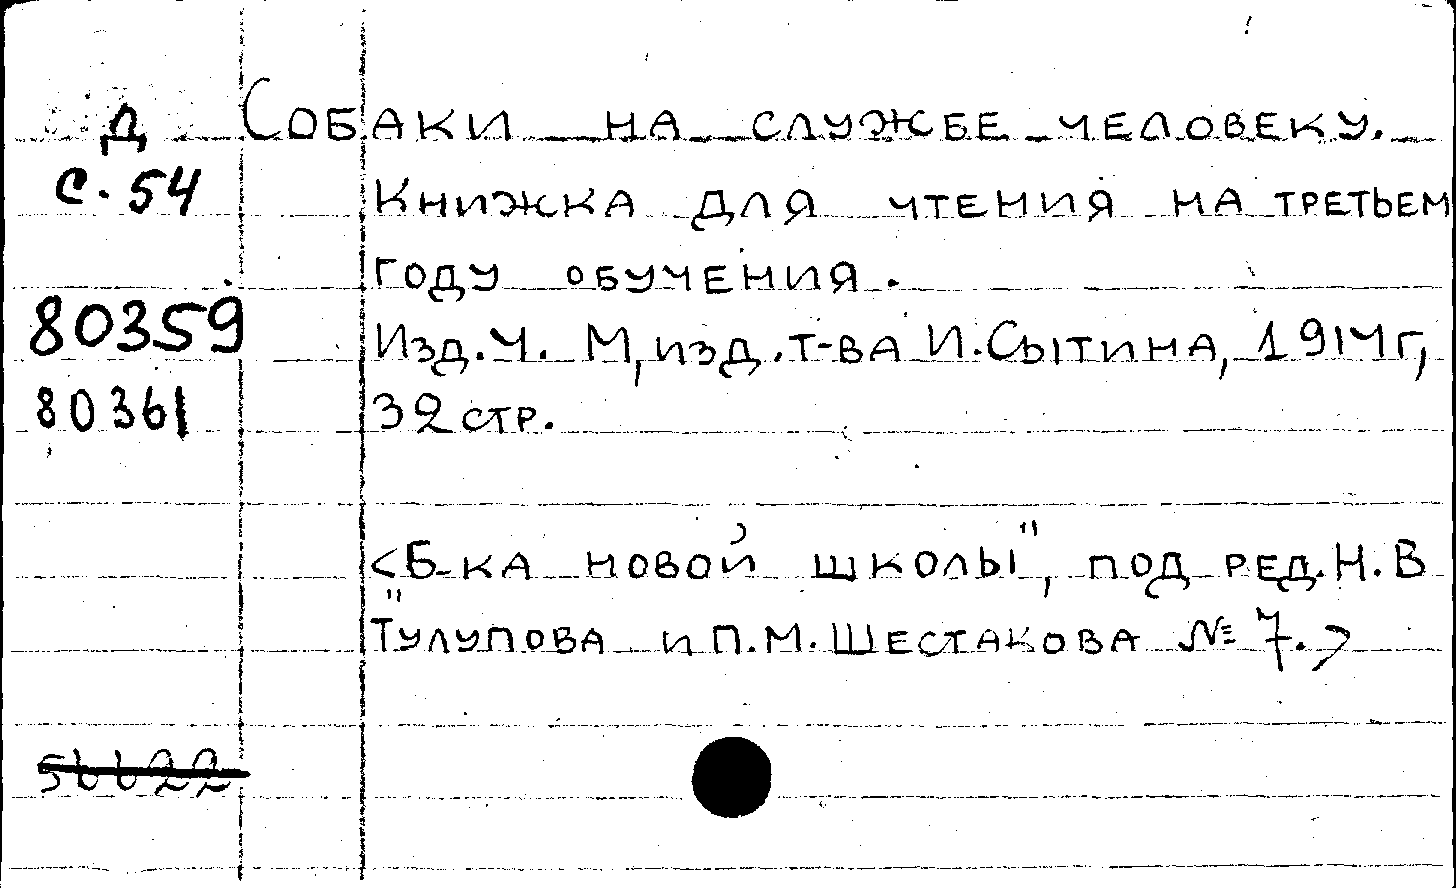 Д Собаки на службе человеку.
С.54 Книжка для чтения на третьем
году обучения.
80359 Изд.4. М, изд. т-ва И.Сытина, 1914г,
80361 32 стр.
<"Б-ка новой школы", под ред. Н.В
Тулупова и П.М.Шестакова № 7.>